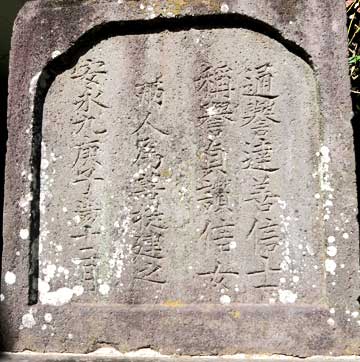 通譽達善信士
稱譽貞讃信女
兩人為菩提建之
安永九庚子歳十二月